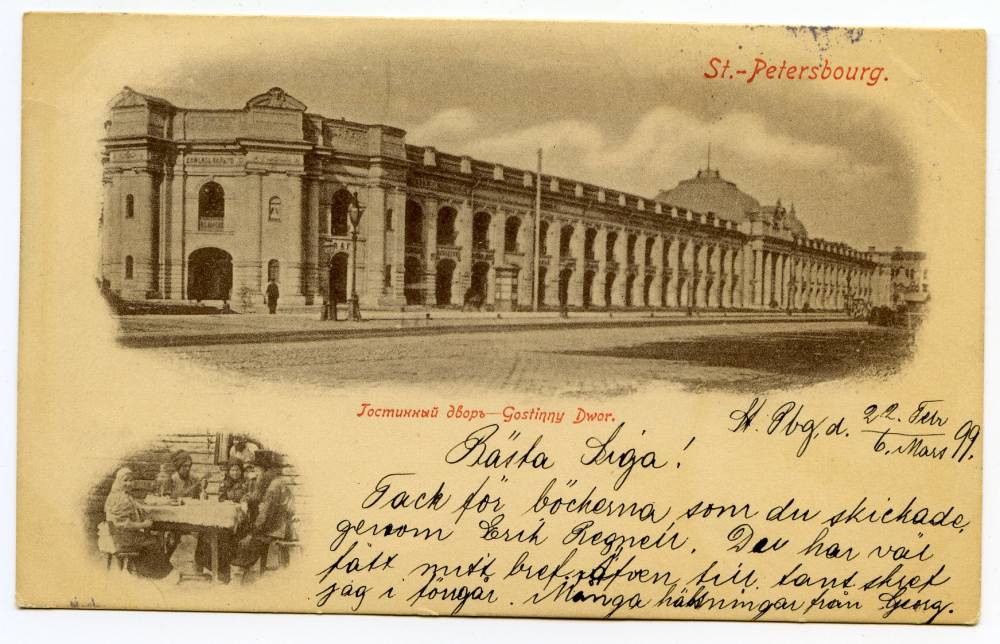 St.-Petersbourg.
Гостинный дворъ—Gostinny Dwor.
St. Pbg, d. 22. Febr / 6. Mars 99.
Bästa Siga!
Tack för böckerna som du skickade,
genom Erik Regnell. Du har väl
fått mitt bref. Äfven till tant skref
jag i söngår. Många hälsningar från Georg.